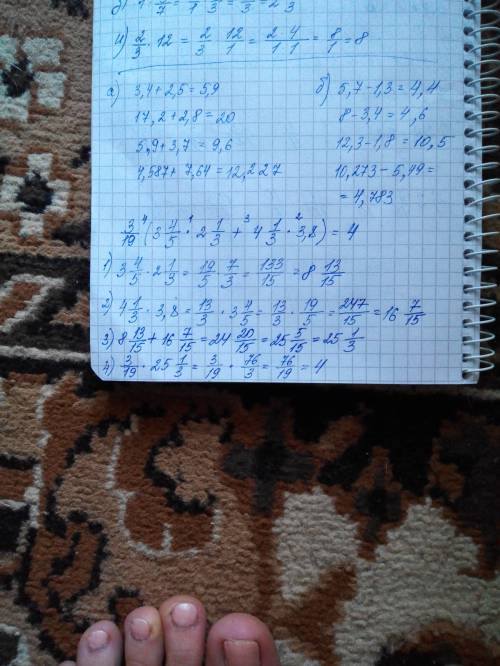 и) 2/3 · 12 = 2/3 · 12/1 = 2·4/1·1 = 8/1 = 8
а) 3,4 + 2,5 = 5,9
17,2 + 2,8 = 20
5,9 + 3,7 = 9,6
4,587 + 7,64 = 12,227
б) 5,7 - 1,3 = 4,4
8 - 3,4 = 4,6
12,3 - 1,8 = 10,5
10,273 - 5,49 =
= 4,783
3/19 ·⁴ (3 4/5 ·¹ 2 1/3 +³ 4 1/3 ·² 3,8) = 4
1) 3 4/5 · 2 1/3 = 19/5 · 7/3 = 133/15 = 8 13/15
2) 4 1/3 · 3,8 = 13/3 · 3 4/5 = 13/3 · 19/5 = 247/15 = 16 7/15
3) 8 13/15 + 16 7/15 = 24 20/15 = 25 5/15 = 25 1/3
4) 3/19 · 25 1/3 = 3/19 · 76/3 = 76/19 = 4